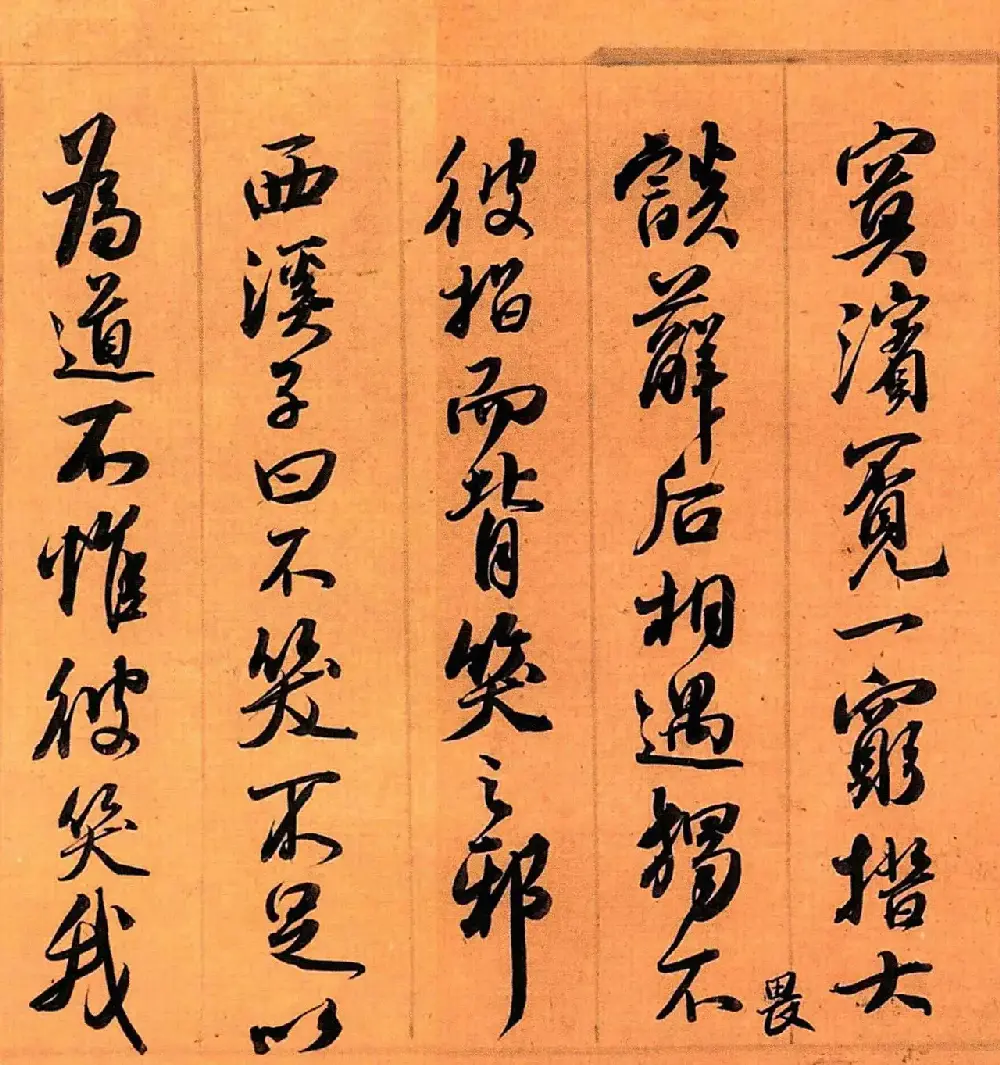 寞濱覔一窮措大
談薢后相遇獨不
畏
彼指而背笑之邪
西溪子曰不笑不足以
為道不惟彼笑我